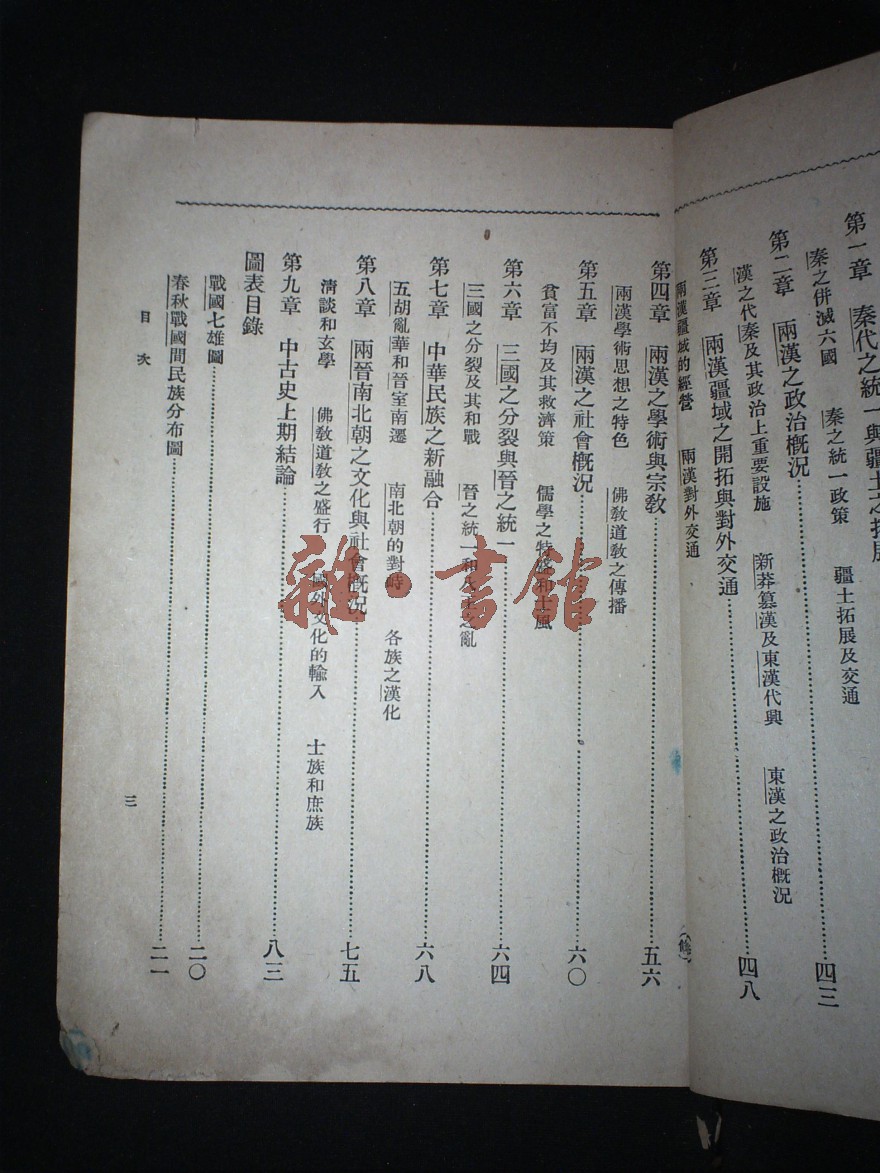 第一章　秦代之統一與疆土之拓展
秦之併滅六國　秦之統一政策　疆土拓展及交通
第二章　兩漢之政治概況……四三
漢之代秦及其政治上重要設施　新莽篡漢及東漢代興　東漢之政治概況
第三章　兩漢疆域之開拓與對外交通……四八
兩漢疆域的經營　兩漢對外交通
第四章　兩漢之學術與宗教……五六
兩漢學術思想之特色　佛教道教之傳播
第五章　兩漢之社會概況……六〇
貧富不均及其救濟策　儒學之特盛和士風
第六章　三國之分裂與晉之統一……六四
三國之分裂及其和戰　晉之統一和八王之亂
第七章　中華民族之新融合……六八
五胡亂華和晉室南遷　南北朝的對峙　各族之漢化
第八章　兩晉南北朝之文化與社會概況……七五
清談和玄學　佛教道教之盛行　域外文化的輸入　士族和庶族
第九章　中古史上期結論……八三
圖表目錄
戰國七雄圖……二〇
春秋戰國間民族分布圖……二一
目次
三
雜·書館